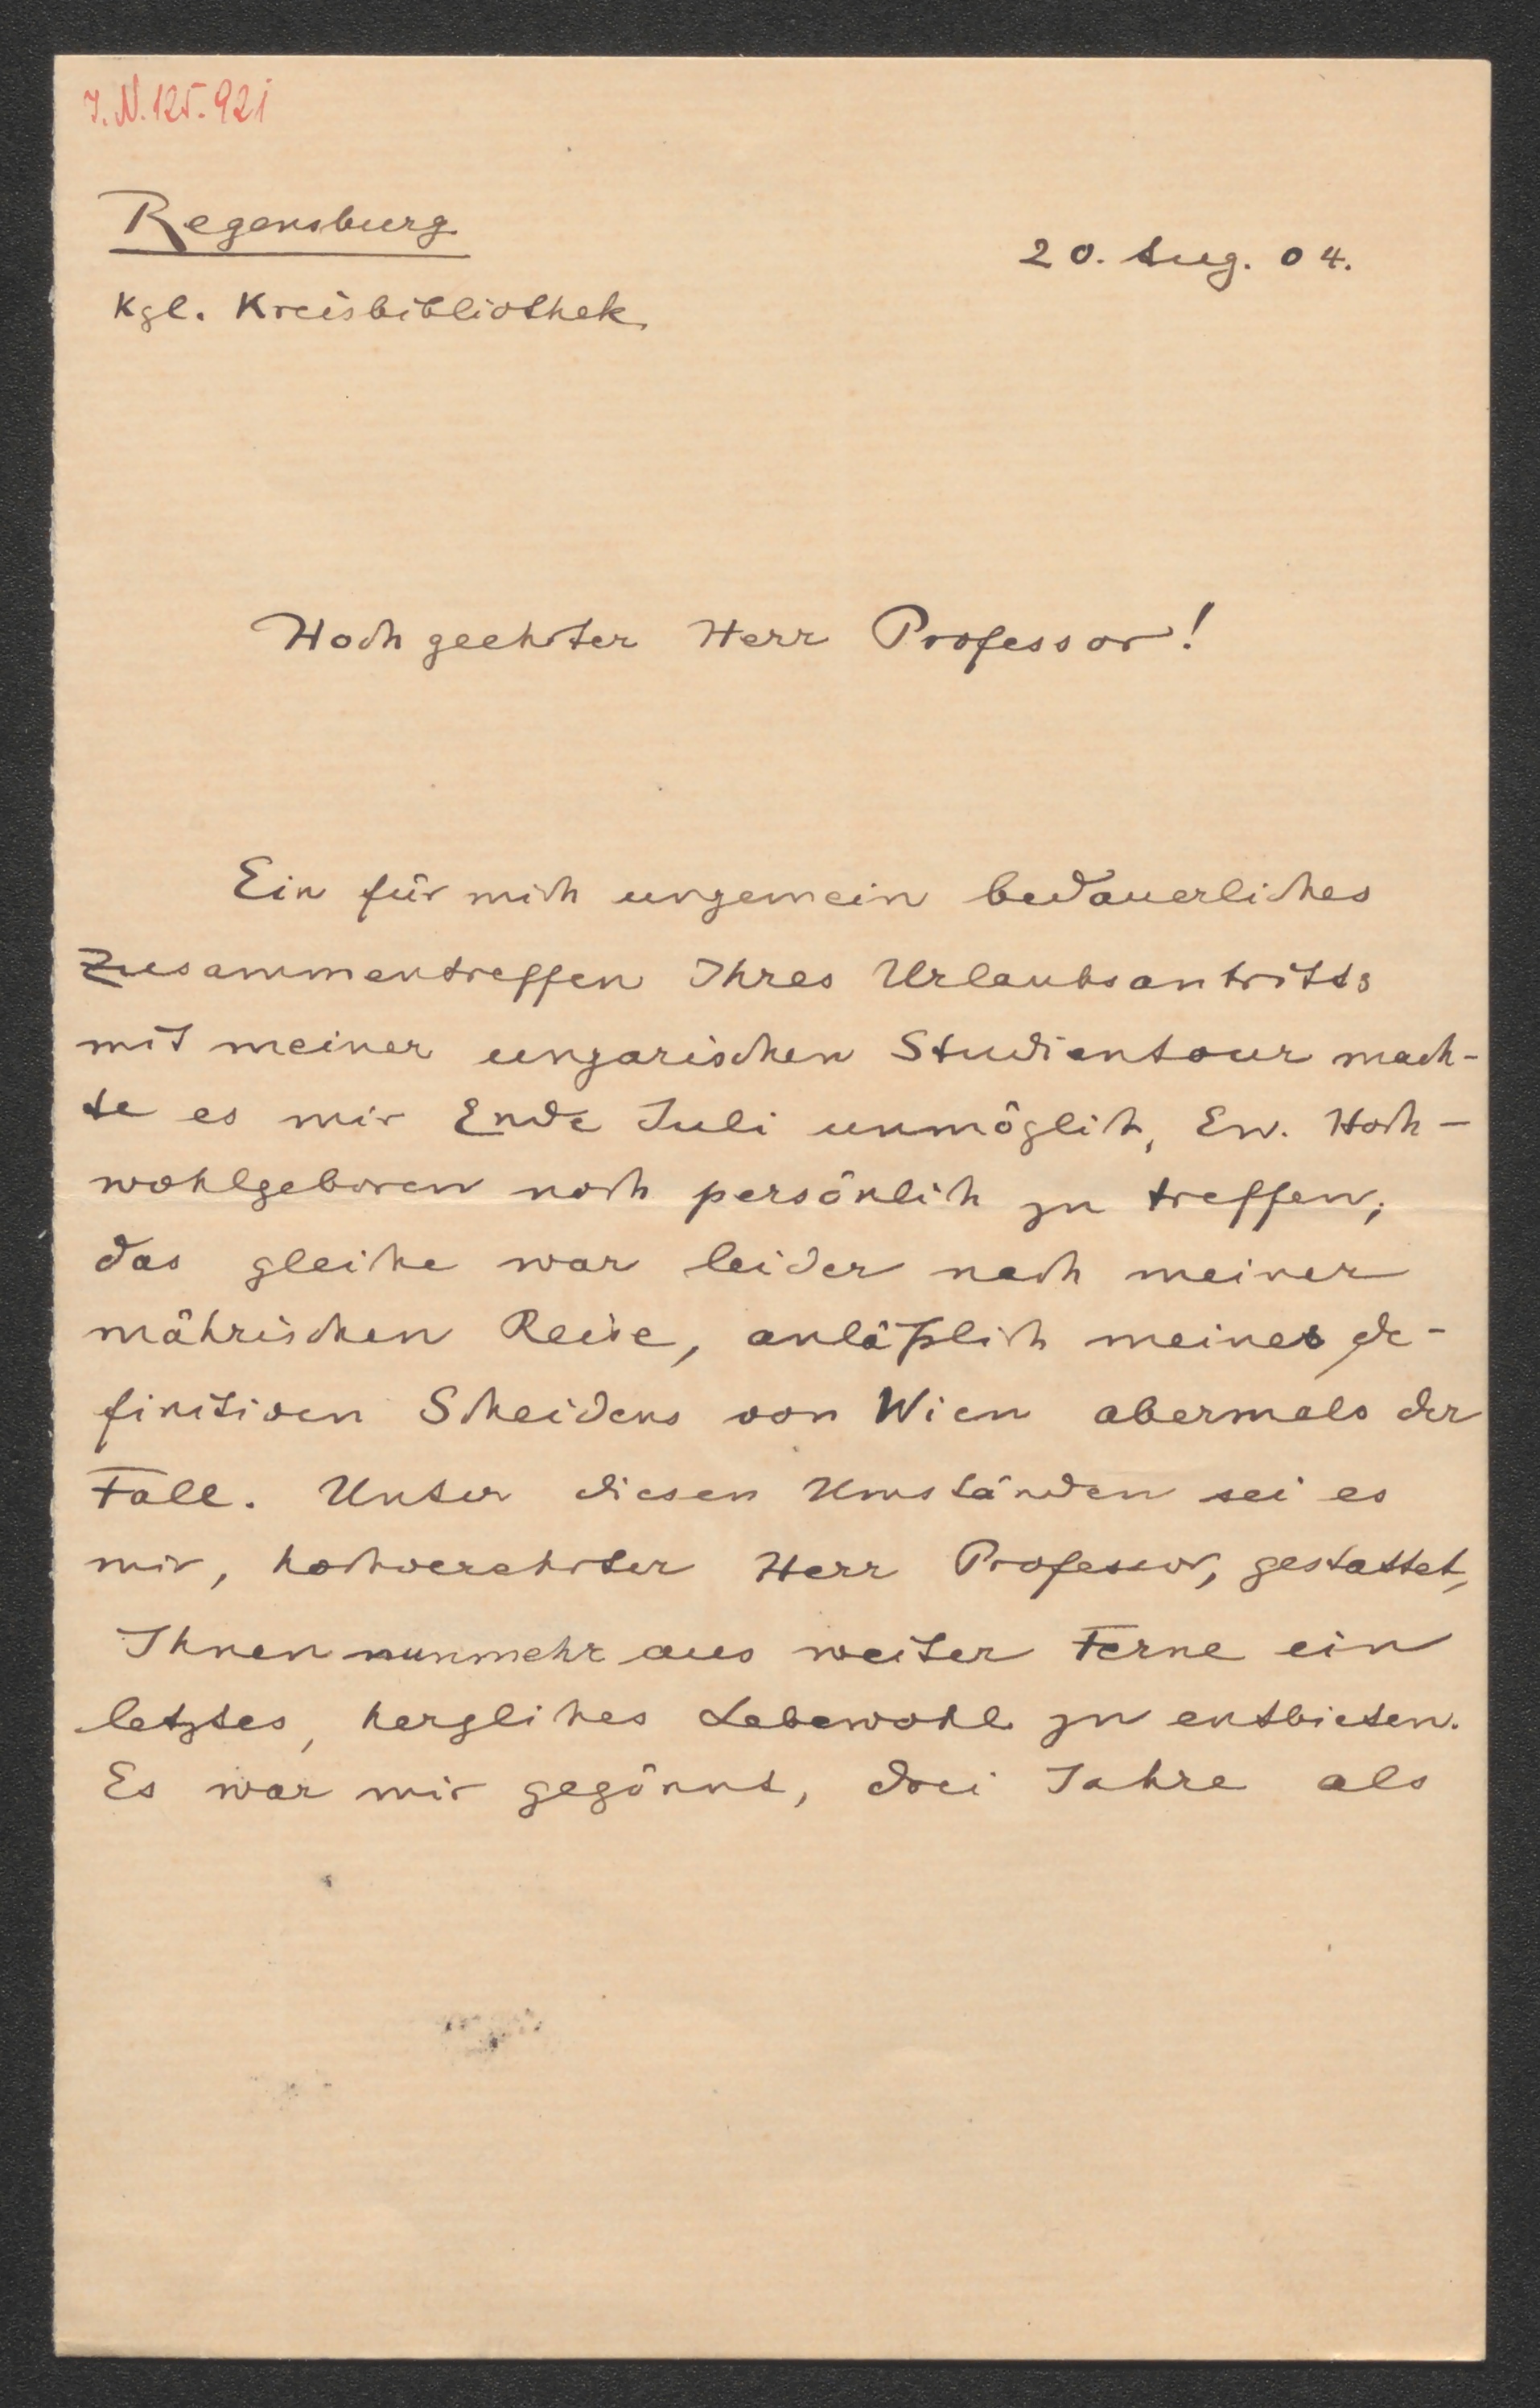 I.N. 125.921
Regensburg
20. Aug. 04.
Kgl. Kreisbibliothek.
Hochgeehrter Herr Professor!
Ein für mich ungemein bedauerliches
Zusammentreffen Ihres Urlaubsantritts
mit meiner ungarischen Studientour mach-
te es mir Ende Juli unmöglich, Ew. Hoch-
wohlgeboren noch persönlich zu treffen;
das gleiche war leider nach meiner
mährischen Reise, anläßlich meines de-
finitiven Scheidens von Wien abermals der
Fall. Unter diesen Umständen sei es
mir, hochverehrter Herr Professor, gestattet,
Ihnen nunmehr aus weiter Ferne ein
letztes, herzliches Lebewohl zu entbieten.
Es war mir gegönnt, drei Jahre als